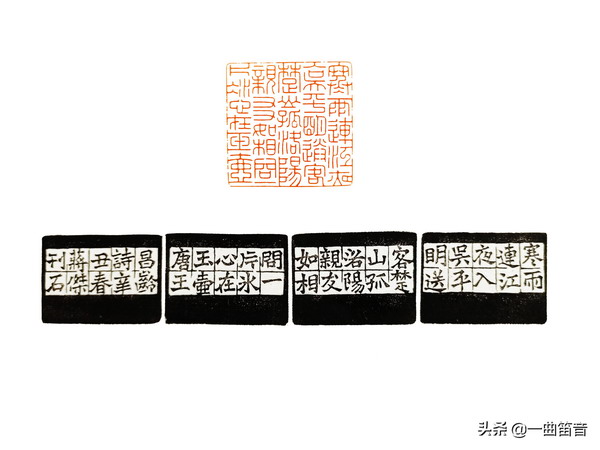 寒雨連江夜入
吳平明送客
楚山孤洛陽
親友如相問
一片冰心在玉壺
寒雨
連江
夜入
吳平
明送
客楚
山孤
洛陽
親友
如相
問一
片氷
心在
玉壺
唐王
昌齡
詩辛
丑春
蔣傑
刊石
头条 @一曲笛音